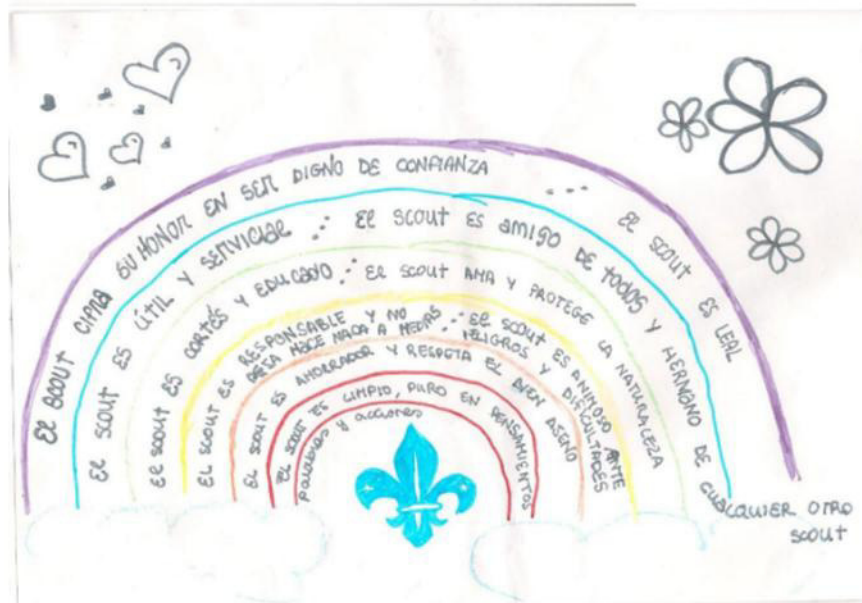 El scout cifra su honor en ser digno de confianza ... El scout es leal
El scout es útil y servicial ∴ El scout es amigo de todos y hermano de cualquier otro scout
El scout es cortés y educado ∴ El scout ama y protege la naturaleza
El scout es responsable y no deja hace nada a medias ∴ El scout es animoso ante peligros y dificultades
El scout es ahorrador y respeta el bien ageno
El scout es limpio, puro en pensamientos
palabras y acciones